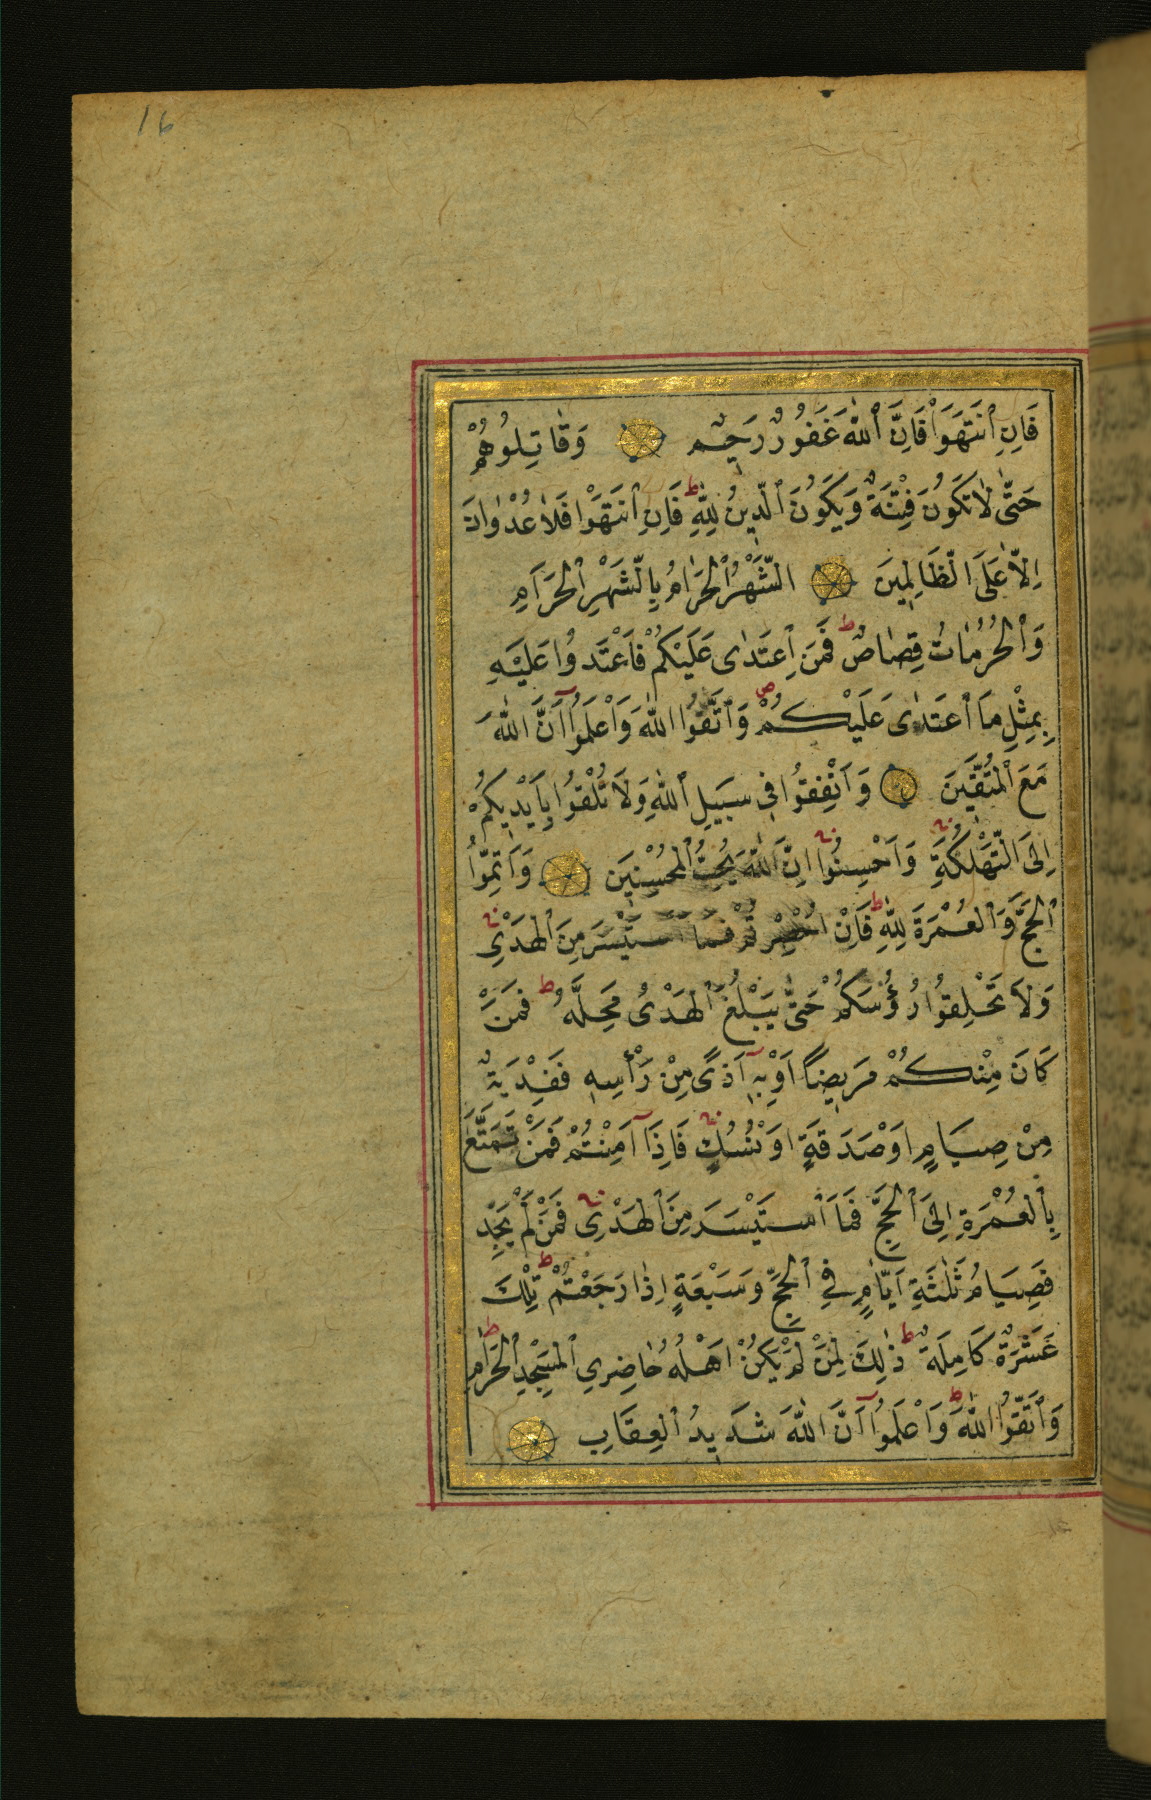 16
فَاِنِ ٱنْتَهَوَاْ فَاِنَّ ٱللّٰهَ غَفُورٌ رَحِيْمٌ وَقَاتِلُوهُمْ
حَتّٰى لَا تَكُونَ فِتْنَةٌ وَيَكُونَ ٱلدِّينُ لِلّٰهِ ط فَاِنِ ٱنْتَهَوْا فَلَا عُدْوَانَ
اِلَّا عَلَى الظَّالِمِينَ الشَّهْرُ ٱلْحَرَامُ بِالشَّهْرِ ٱلْحَرَامِ
وَٱلْحُرُمَاتُ قِصَاصٌ ط فَمَنِ ٱعْتَدٰى عَلَيْكُمْ فَاعْتَدُوا عَلَيْهِ
بِمِثْلِ مَا ٱعْتَدٰى عَلَيْكُمْ ص وَٱتَّقُوا اللّٰهَ وَاعْلَمُوٓا اَنَّ اللّٰهَ
مَعَ ٱلْمُتَّقِينَ وَاَنْفِقُوا فِي سَبِيلِ ٱللّٰهِ وَلَا تُلْقُوا بِاَيْدِيكُمْ
اِلَى التَّهْلُكَةِ وَاَحْسِنُوا اِنَّ اللّٰهَ يُحِبُّ ٱلْمُحْسِنِينَ وَاَتِمُّوا
ٱلْحَجَّ وَٱلْعُمْرَةَ لِلّٰهِ ط فَاِنْ اُحْصِرْتُمْ فَمَا ٱسْتَيْسَرَ مِنَ ٱلْهَدْيِ
وَلَا تَحْلِقُوا رُؤُسَكُمْ حَتّٰى يَبْلُغَ ٱلْهَدْىُ مَحِلَّهُ ط فَمَنْ
كَانَ مِنْكُمْ مَرِيضًا اَوْ بِهٓ اَذًى مِنْ رَأْسِهِ فَفِدْيَةٌ
مِنْ صِيَامٍ اَوْ صَدَقَةٍ اَوْ نُسُكٍ فَاِذَآ اَمِنْتُمْ فَمَنْ تَمَتَّعَ
بِٱلْعُمْرَةِ اِلَى ٱلْحَجِّ فَمَا ٱسْتَيْسَرَ مِنَ ٱلْهَدْيِ فَمَنْ لَمْ يَجِدْ
فَصِيَامُ ثَلٰثَةِ اَيَّامٍ فِي ٱلْحَجِّ وَسَبْعَةٍ اِذَا رَجَعْتُمْ ط تِلْكَ
عَشَرَةٌ كَامِلَةٌ ط ذٰلِكَ لِمَنْ لَمْ يَكُنْ اَهْلُهُ حَاضِرِي ٱلْمَسْجِدِ ٱلْحَرَامِ ط
وَٱتَّقُوا اللّٰهَ ط وَاعْلَمُوٓا اَنَّ اللّٰهَ شَدِيدُ ٱلْعِقَابِ